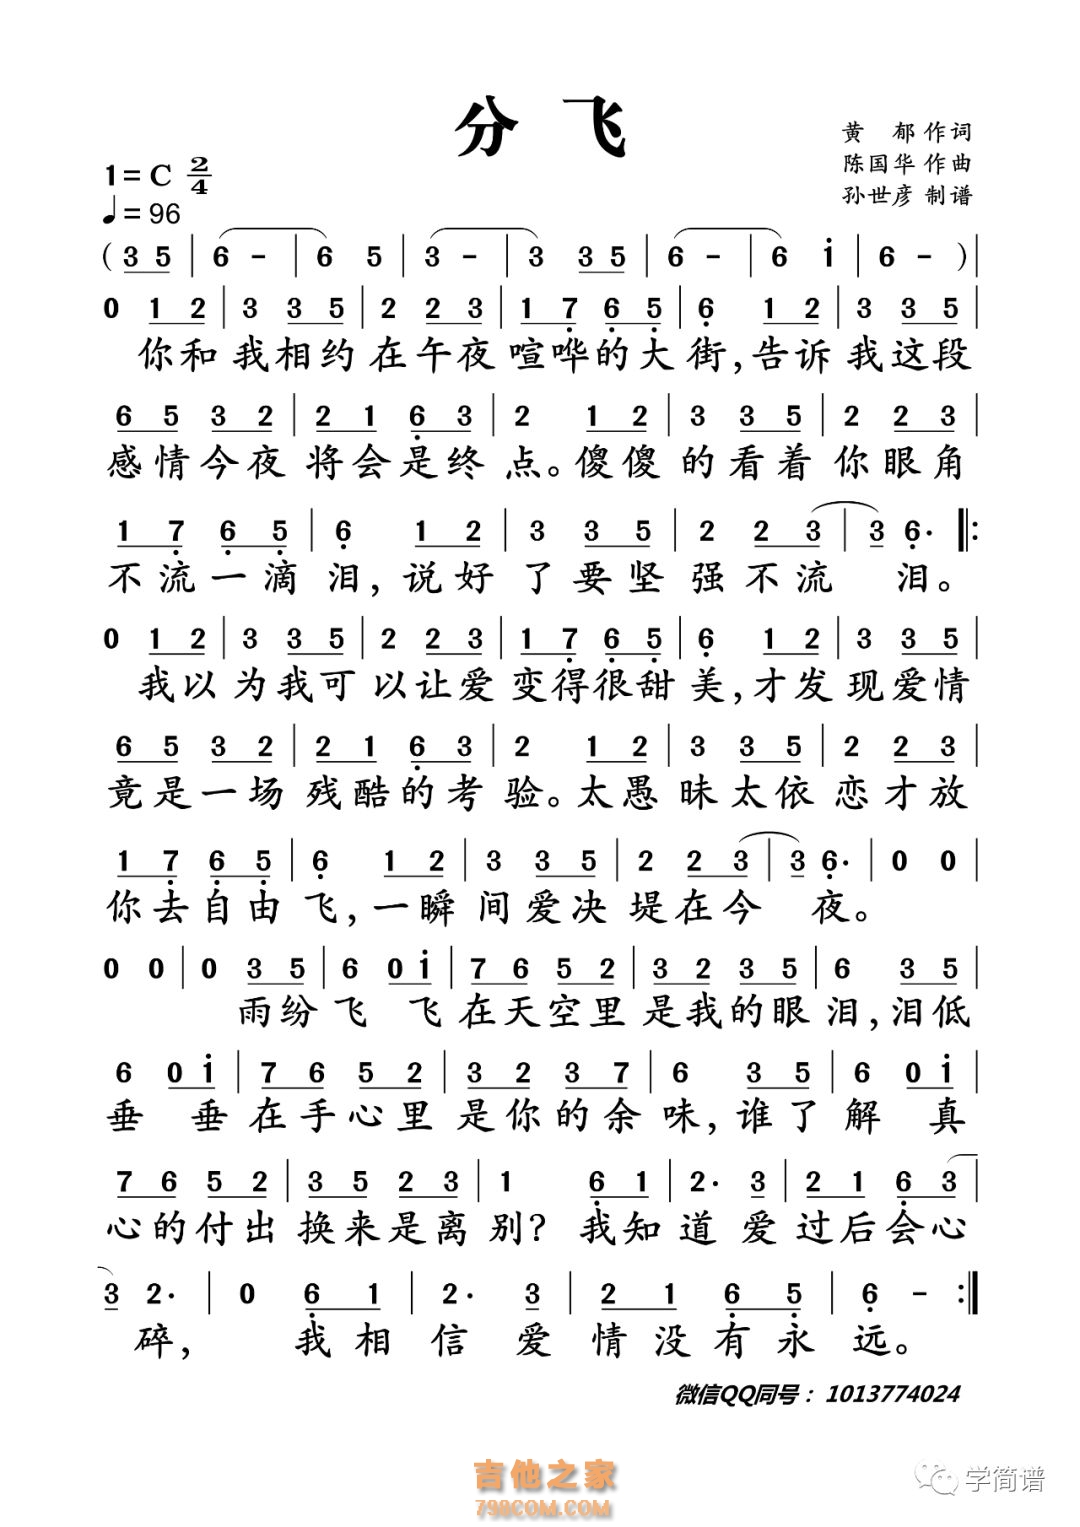 分 飞
黄 郁 作词
陈国华 作曲
孙世彦 制谱
1=C 2/4
♩=96
( 3 5 | 6 - | 6 5 | 3 - | 3 3 5 | 6 - | 6 i | 6 - ) |
0 1 2 | 3 3 5 | 2 2 3 | 1 7 6 5 | 6 1 2 | 3 3 5 |
你和 我相约 在午夜 喧哗的大 街,告诉 我这段
6 5 3 2 | 2 1 6 3 | 2 1 2 | 3 3 5 | 2 2 3 |
感情今夜 将会是终 点。傻傻 的看着 你眼角
1 7 6 5 | 6 1 2 | 3 3 5 | 2 2 3 | 3 6· ‖:
不流一滴 泪,说好 了要坚 强不流 泪。
0 1 2 | 3 3 5 | 2 2 3 | 1 7 6 5 | 6 1 2 | 3 3 5 |
我以 为我可 以让爱 变得很甜 美,才发 现爱情
6 5 3 2 | 2 1 6 3 | 2 1 2 | 3 3 5 | 2 2 3 |
竟是一场 残酷的考 验。太愚 昧太依 恋才放
1 7 6 5 | 6 1 2 | 3 3 5 | 2 2 3 | 3 6· | 0 0 |
你去自由 飞,一瞬 间爱决 堤在今 夜。
0 0 | 0 3 5 | 6 0 i | 7 6 5 2 | 3 2 3 5 | 6 3 5 |
雨纷 飞 飞 在天空里 是我的眼 泪,泪低
6 0 i | 7 6 5 2 | 3 2 3 7 | 6 3 5 | 6 0 i |
垂 垂 在手心里 是你的余 味,谁了 解 真
7 6 5 2 | 3 5 2 3 | 1 6 1 | 2· 3 | 2 1 6 3 |
心的付出 换来是离 别?我知 道 爱 过后会心
3 2· | 0 6 1 | 2· 3 | 2 1 6 5 | 6 - :‖
碎, 我相 信 爱 情没有永 远。
微信QQ同号：1013774024
吉他之家
798COM.COM
学简谱